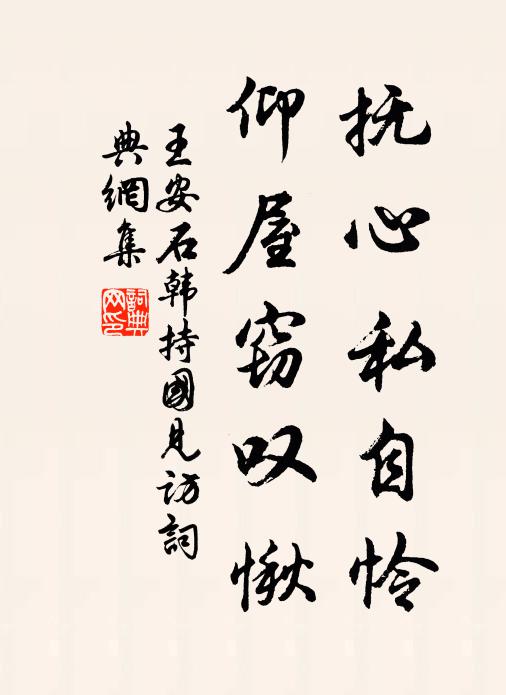 抚心私自怜
仰屋窃叹愀
王安石韩持國见访詞
典網集
詞典
网印